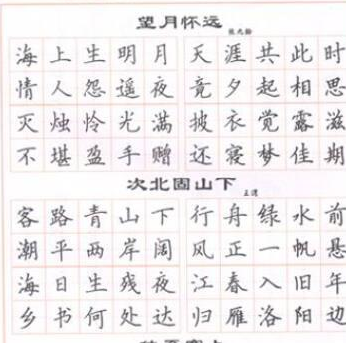 望月怀远
张九龄
海上生明月 天涯共此时
情人怨遥夜 竟夕起相思
灭烛怜光满 披衣觉露滋
不堪盈手赠 还寝梦佳期
次北固山下
王湾
客路青山下 行舟绿水前
潮平两岸阔 风正一帆悬
海日生残夜 江春入旧年
乡书何处达 归雁洛阳边